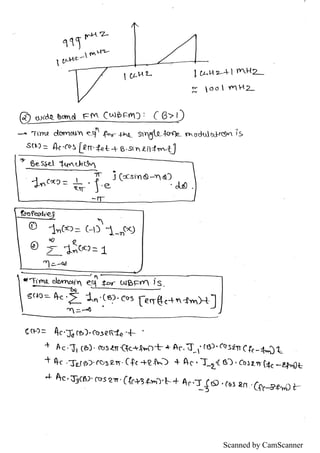 999 MHZ
1 GHZ - 1 MHZ
1 GHZ
1 GHZ + 1 MHZ
= 1001 MHZ
② wide band FM (WBFM): (β>1)
→ Time domain eqn for the single tone modulation is
S(t) = Ac·cos[2π·fct + β·sin2πfmt]
* Bessel function
Jn(x) = 1/2π · ∫ e^j(x sinθ-nθ) · dθ.
π
-π
properties
① Jn(x) = (-1)^n J-n(x)
② ∑ Jn²(x) = 1
∞
n=-∞
* Time domain eq for WBFM is.
S(t) = Ac·∑ Jn·(β)·cos[2π(fc+n·fm)t]
∞
n=-∞
S(t) = Ac·J0(β)·cos2πfc t
+ Ac·J1(β)·cos2π(fc+fm)t + Ac·J-1(β)·cos2π(fc-fm)t
+ Ac·J2(β)·cos2π·(fc+2fm) + Ac·J-2(β)·cos2π(fc-2fm)t
+ Ac·J3(β)·cos2π·(fc+3fm)·t + Ac·J-3(β)·cos2π·(fc-3fm)t
Scanned by CamScanner